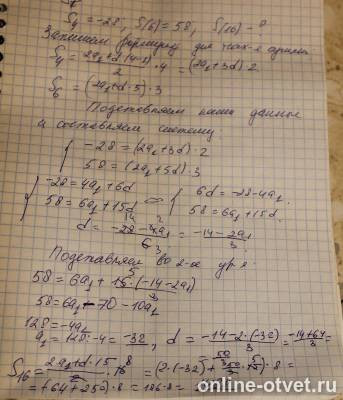 S₄ = -28, S(6) = 58, S(16) - ?
Запишем формулу для
S₄ = (2a₁+d(4-1))/2 · 4 = (2a₁+3d)·2
S₆ = (2a₁+d·5)·3
Подставляем наши данные
и составляем систему
{ -28 = (2a₁+3d)·2
58 = (2a₁+5d)·3
{ -28 = 4a₁+6d ⇔ { 6d = -28-4a₁
58 = 6a₁+15d 58 = 6a₁+15d
d = (-28-4a₁)/6 = (-14-2a₁)/3
Подставляем во 2-е ур-е
58 = 6a₁ + 15·(-14-2a₁)
58 = 6a₁ - 70 - 10a₁
128 = -4a₁
a₁ = 128:-4 = -32, d = (-14-2·(-32))/3 = (-14+64)/3 =
S₁₆ = (2a₁+d·15)/2 · 16 = (2·(-32)+50/3·15)·8 =
= (-64+250)·8 = 186·8 =
online-otvet.ru